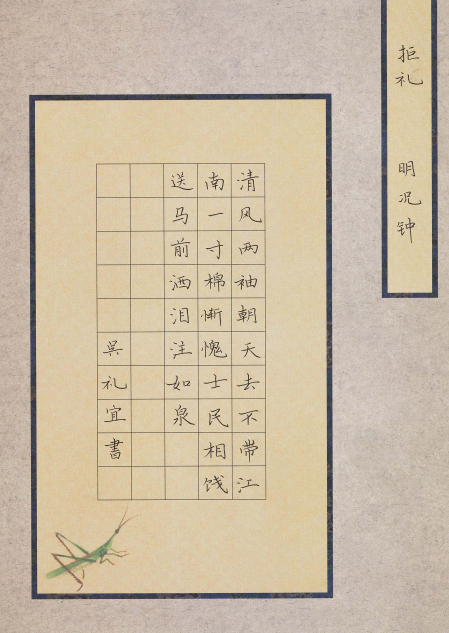 拒礼 明况钟
清风两袖朝天去不带江
南一寸棉惭愧士民相饯
送马前洒泪注如泉
吴礼宜書